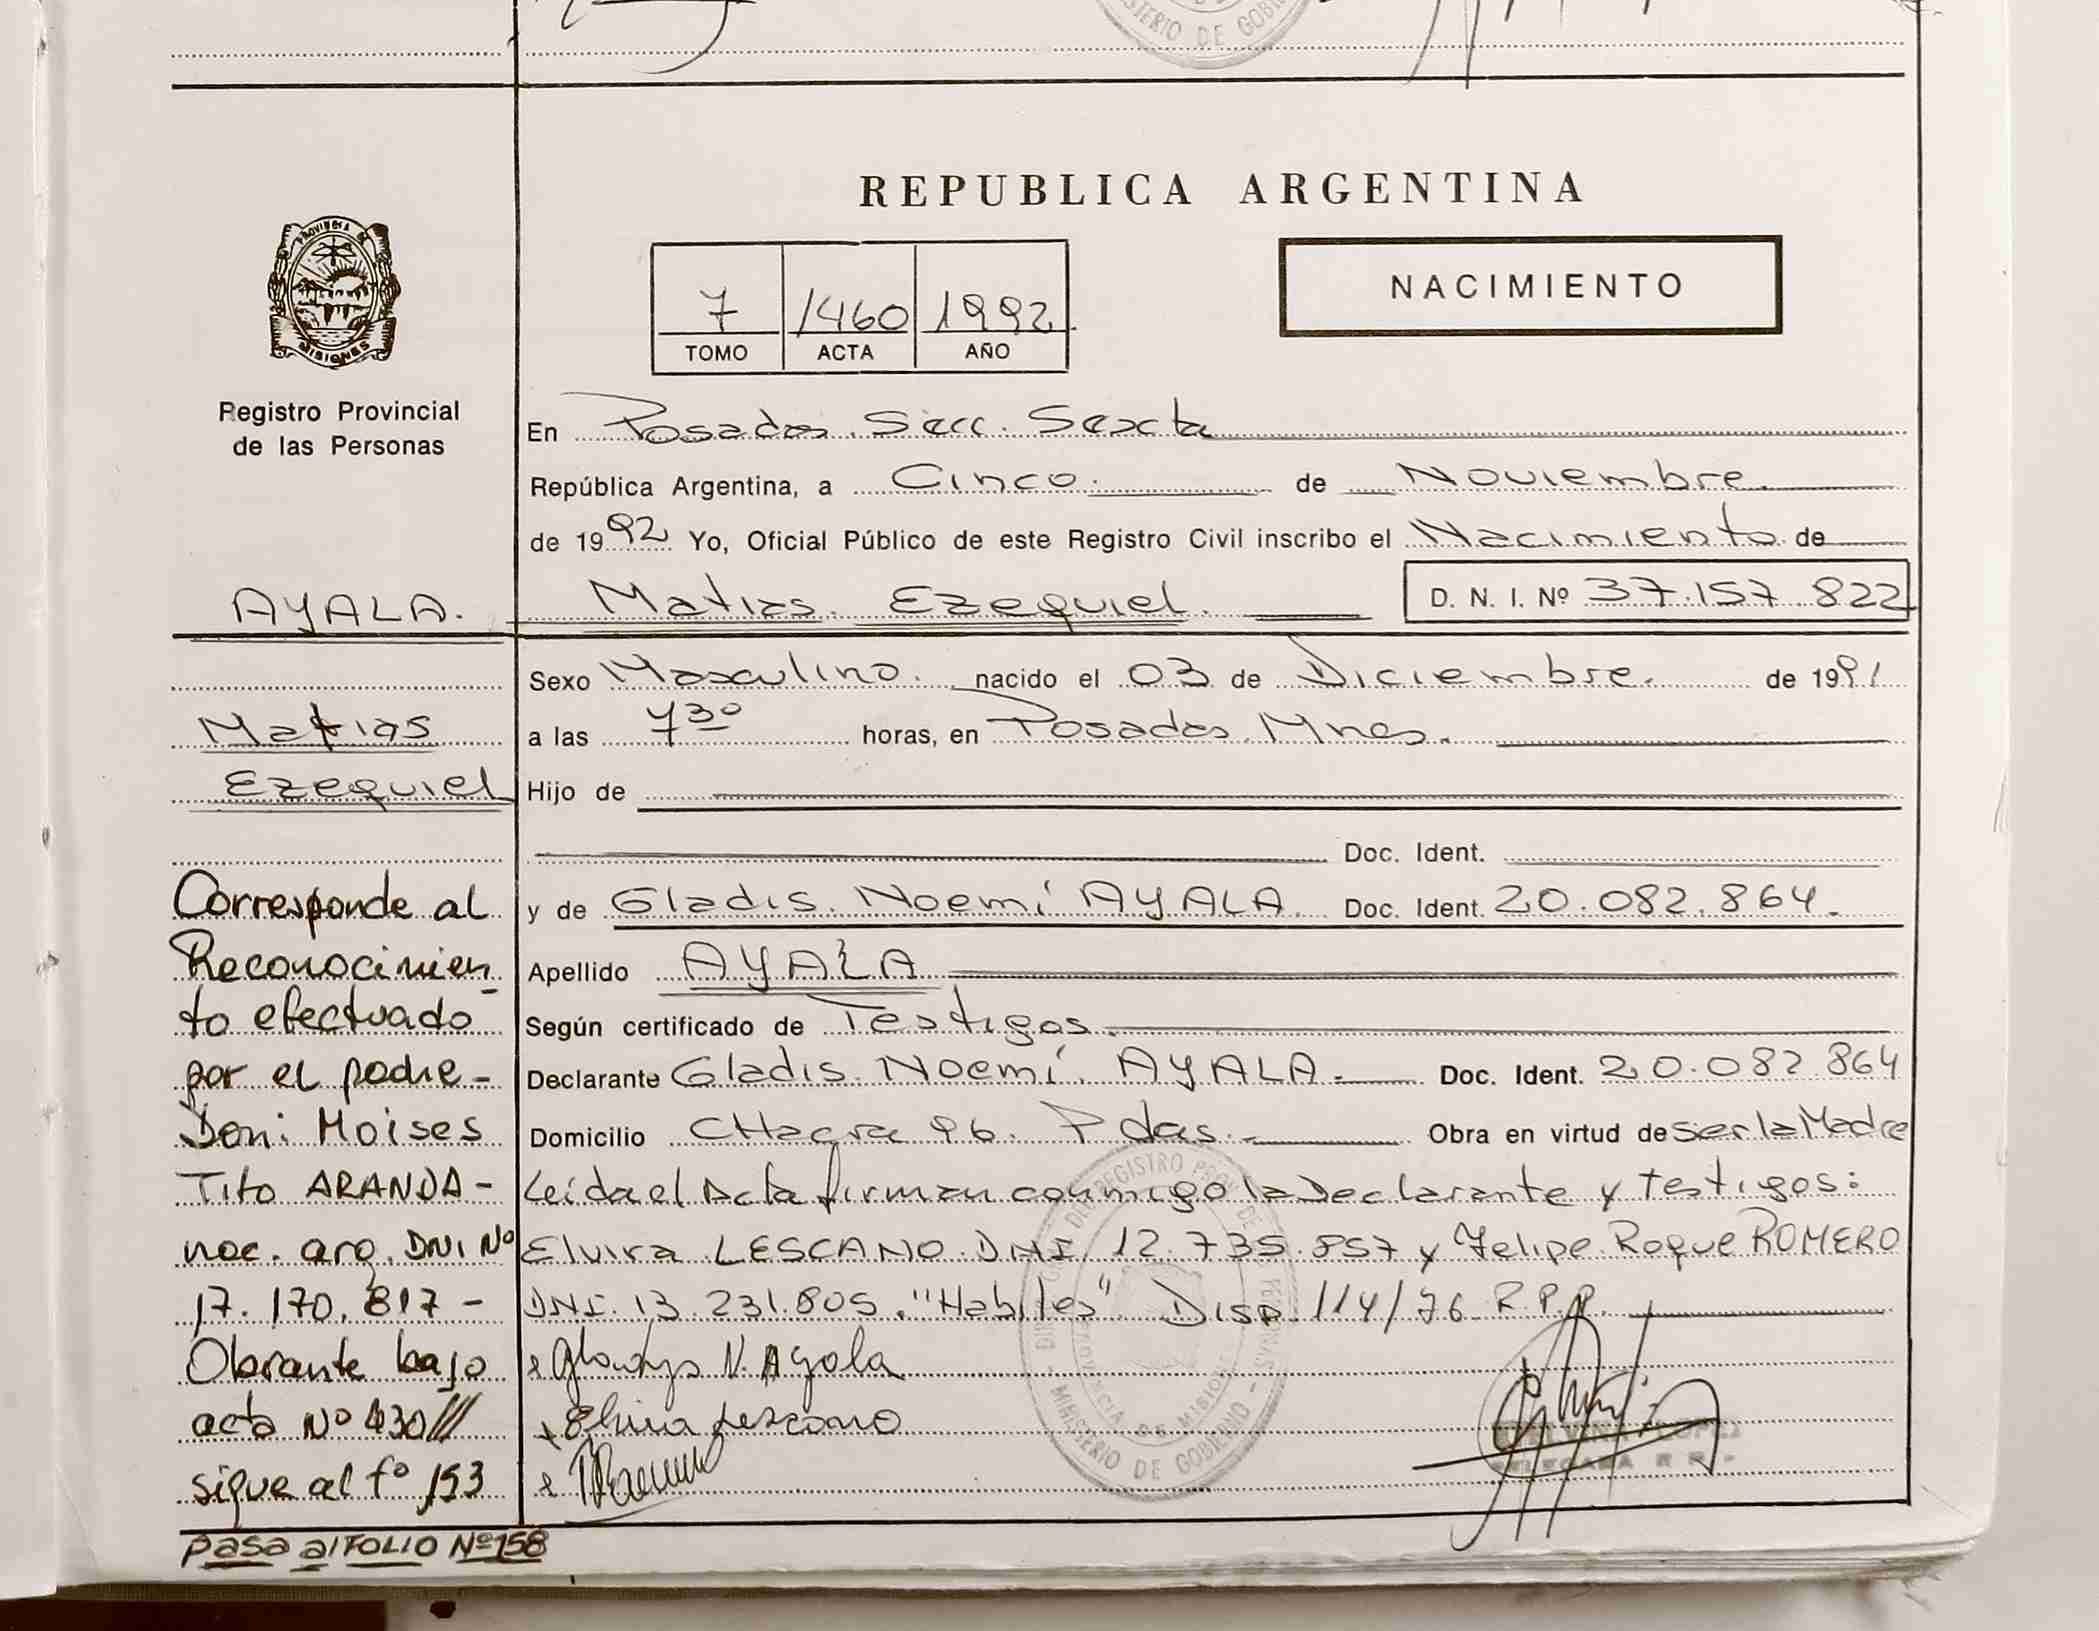 MINISTERIO DE GOBI
REPUBLICA ARGENTINA
PROVINCIA DE
MISIONES
7 1460 1992
TOMO ACTA AÑO
NACIMIENTO
Registro Provincial
de las Personas
En Posadas Secc. Sexta
República Argentina, a Cinco. de Noviembre.
de 1992 Yo, Oficial Público de este Registro Civil inscribo el Nacimiento de
AYALA. Matias Ezequiel. D. N. I. Nº 37.157.822
Sexo Masculino. nacido el 03 de Diciembre. de 1991
a las 7 30 horas, en Posadas Mnes.
Hijo de
Doc. Ident.
y de Gladis Noemí AYALA Doc. Ident. 20.082.864.
Apellido AYALA
Según certificado de Testigos.
Declarante Gladis Noemí AYALA. Doc. Ident. 20.082.864
Domicilio CHacra 96. Pdas. Obra en virtud de ser la Madre
Leida el Acta firman conmigo la Declarante y testigos:
Elvira LESCANO DNI. 12.735.857 y Felipe Roque ROMERO
DNI. 13.231.805. "Habiles" Disp. 114/76 R.P.P.
x Gladys N. Ayala
x Elvira Lezcano
x
Matias
Ezequiel
Corresponde al
Reconocimien
to efectuado
por el padre-
Don: Moises
Tito ARANDA-
nac. arg. DNI Nº
17.170.817-
Obrante bajo
acta Nº 430///
sigue al fº 153
Pasa al FOLIO Nº 158
DIRECCION DEL REGISTRO PROV. DE LAS PERSONAS
PROVINCIA DE MISIONES
MINISTERIO DE GOBIERNO
LOPEZ
DELEGADA R.P.